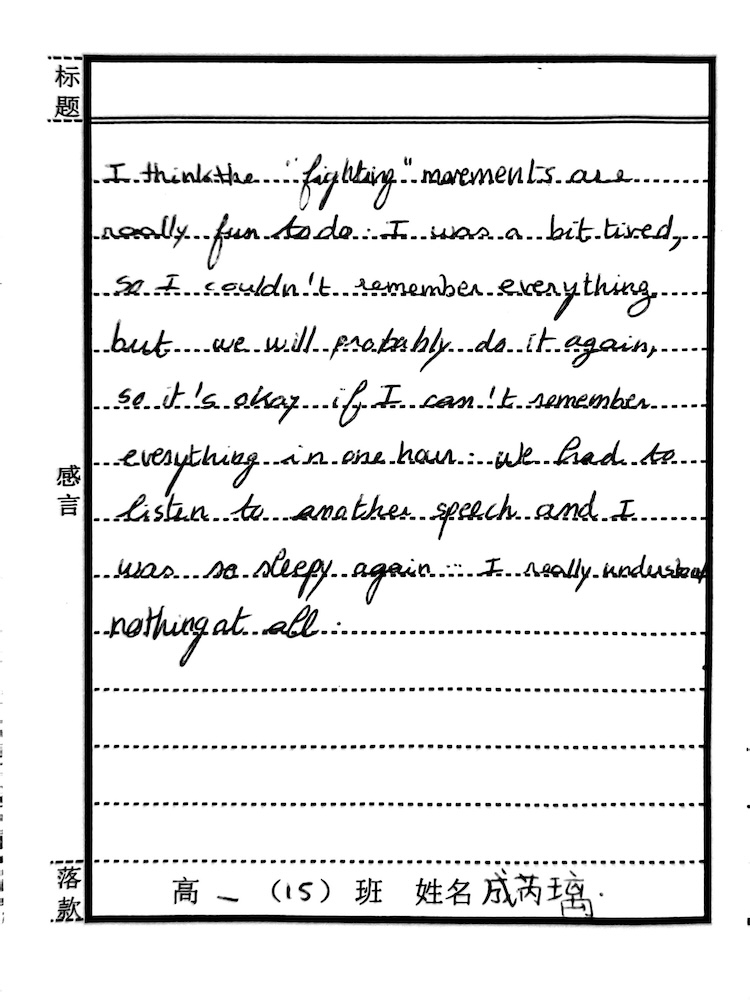 标题
I think the "fighting" movements are
really fun to do. I was a bit tired,
so I couldn't remember everything
but we will probably do it again,
so it's okay if I can't remember
everything in one hour. We had to
感言
listen to another speech and I
was so sleepy again... I really understood
nothing at all.
落款
高一 (15) 班 姓名 成芮璃.